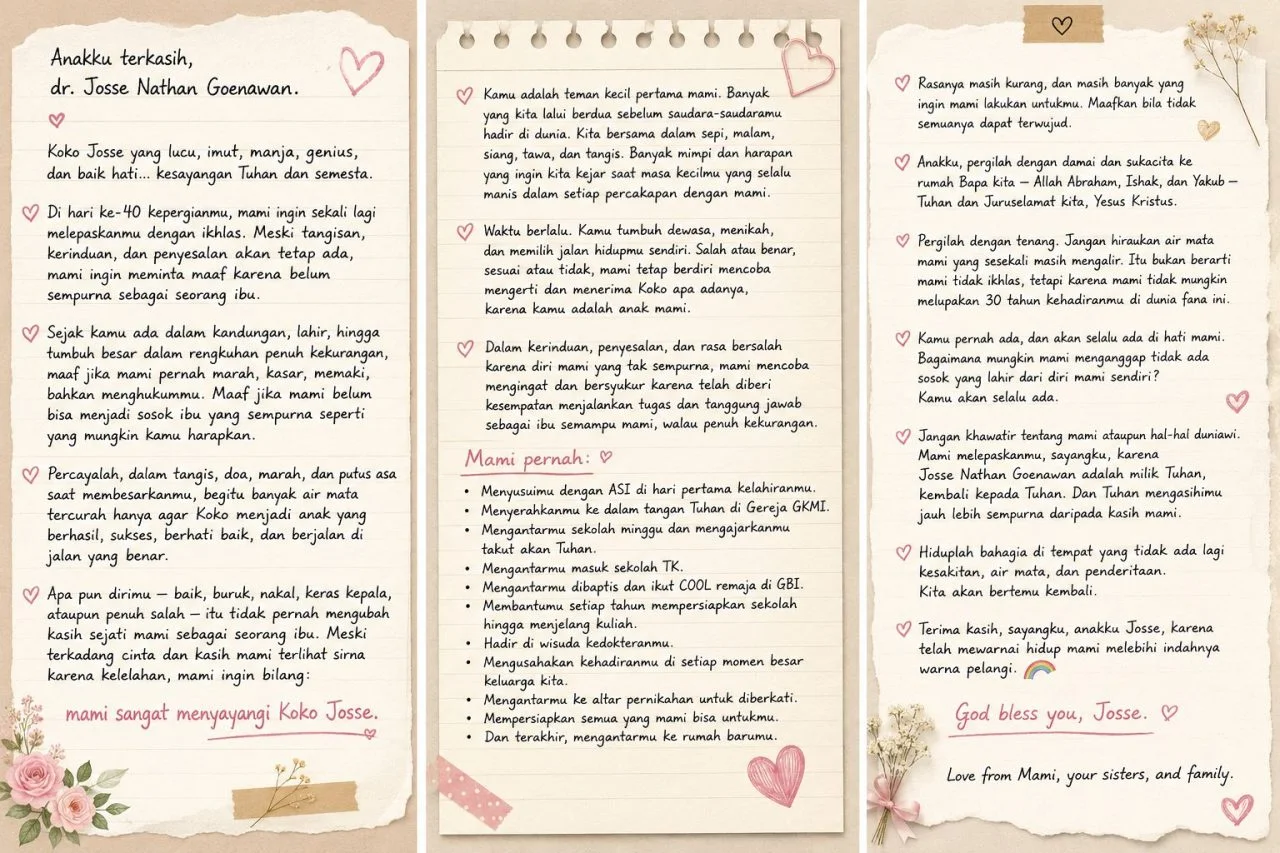 Anakku terkasih,
dr. Josse Nathan Goenawan.
Koko Josse yang lucu, imut, manja, genius,
dan baik hati... kesayangan Tuhan dan semesta.
Di hari ke-40 kepergianmu, mami ingin sekali lagi
melepaskanmu dengan ikhlas. Meski tangisan,
kerinduan, dan penyesalan akan tetap ada,
mami ingin meminta maaf karena belum
sempurna sebagai seorang ibu.
Sejak kamu ada dalam kandungan, lahir, hingga
tumbuh besar dalam rengkuhan penuh kekurangan,
maaf jika mami pernah marah, kasar, memaki,
bahkan menghukummu. Maaf jika mami belum
bisa menjadi sosok ibu yang sempurna seperti
yang mungkin kamu harapkan.
Percayalah, dalam tangis, doa, marah, dan putus asa
saat membesarkanmu, begitu banyak air mata
tercurah hanya agar Koko menjadi anak yang
berhasil, sukses, berhati baik, dan berjalan di
jalan yang benar.
Apa pun dirimu — baik, buruk, nakal, keras kepala,
ataupun penuh salah — itu tidak pernah mengubah
kasih sejati mami sebagai seorang ibu. Meski
terkadang cinta dan kasih mami terlihat sirna
karena kelelahan, mami ingin bilang:
mami sangat menyayangi Koko Josse.
Kamu adalah teman kecil pertama mami. Banyak
yang kita lalui berdua sebelum saudara-saudaramu
hadir di dunia. Kita bersama dalam sepi, malam,
siang, tawa, dan tangis. Banyak mimpi dan harapan
yang ingin kita kejar saat masa kecilmu yang selalu
manis dalam setiap percakapan dengan mami.
Waktu berlalu. Kamu tumbuh dewasa, menikah,
dan memilih jalan hidupmu sendiri. Salah atau benar,
sesuai atau tidak, mami tetap berdiri mencoba
mengerti dan menerima Koko apa adanya,
karena kamu adalah anak mami.
Dalam kerinduan, penyesalan, dan rasa bersalah
karena diri mami yang tak sempurna, mami mencoba
mengingat dan bersyukur karena telah diberi
kesempatan menjalankan tugas dan tanggung jawab
sebagai ibu semampu mami, walau penuh kekurangan.
Mami pernah:
• Menyusuimu dengan ASI di hari pertama kelahiranmu.
• Menyerahkanmu ke dalam tangan Tuhan di Gereja GKMI.
• Mengantarmu sekolah minggu dan mengajarkanmu
takut akan Tuhan.
• Mengantarmu masuk sekolah TK.
• Mengantarmu dibaptis dan ikut COOL remaja di GBI.
• Membantumu setiap tahun mempersiapkan sekolah
hingga menjelang kuliah.
• Hadir di wisuda kedokteranmu.
• Mengusahakan kehadiranmu di setiap momen besar
keluarga kita.
• Mengantarmu ke altar pernikahan untuk diberkati.
• Mempersiapkan semua yang mami bisa untukmu.
• Dan terakhir, mengantarmu ke rumah barumu.
Rasanya masih kurang, dan masih banyak yang
ingin mami lakukan untukmu. Maafkan bila tidak
semuanya dapat terwujud.
Anakku, pergilah dengan damai dan sukacita ke
rumah Bapa kita — Allah Abraham, Ishak, dan Yakub —
Tuhan dan Juruselamat kita, Yesus Kristus.
Pergilah dengan tenang. Jangan hiraukan air mata
mami yang sesekali masih mengalir. Itu bukan berarti
mami tidak ikhlas, tetapi karena mami tidak mungkin
melupakan 30 tahun kehadiranmu di dunia fana ini.
Kamu pernah ada, dan akan selalu ada di hati mami.
Bagaimana mungkin mami menganggap tidak ada
sosok yang lahir dari diri mami sendiri?
Kamu akan selalu ada.
Jangan khawatir tentang mami ataupun hal-hal duniawi.
Mami melepaskanmu, sayangku, karena
Josse Nathan Goenawan adalah milik Tuhan,
kembali kepada Tuhan. Dan Tuhan mengasihimu
jauh lebih sempurna daripada kasih mami.
Hiduplah bahagia di tempat yang tidak ada lagi
kesakitan, air mata, dan penderitaan.
Kita akan bertemu kembali.
Terima kasih, sayangku, anakku Josse, karena
telah mewarnai hidup mami melebihi indahnya
warna pelangi. 🌈
God bless you, Josse.
Love from Mami, your sisters, and family.